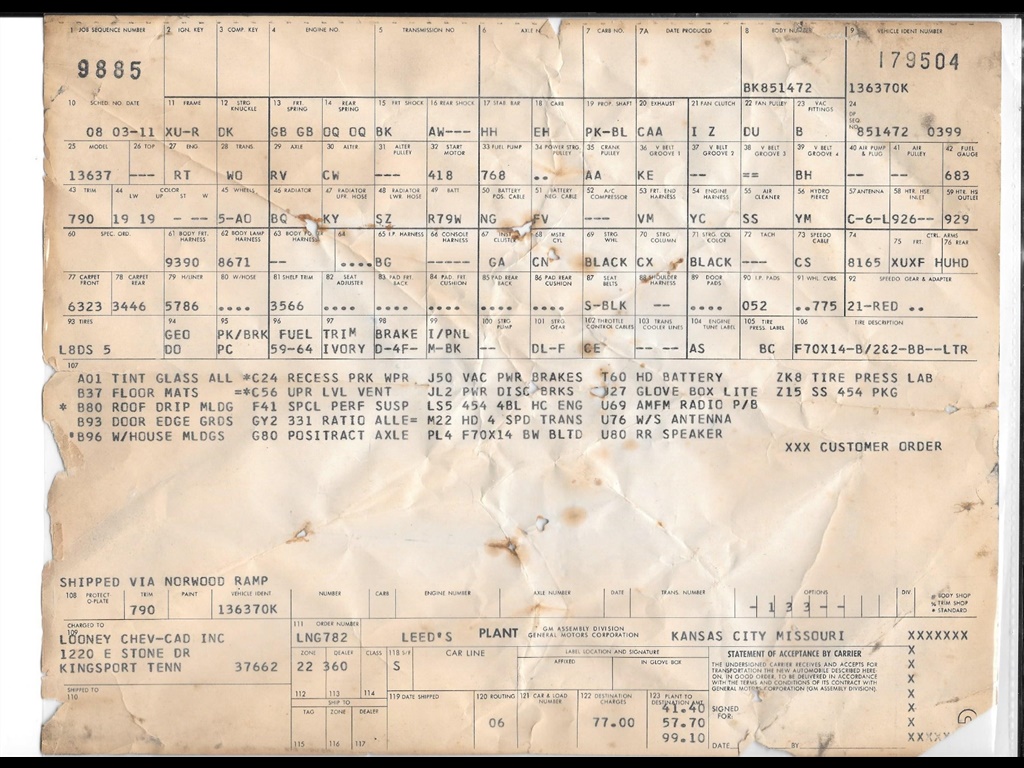 1 JOB SEQUENCE NUMBER 2 IGN. KEY 3 COMP. KEY 4 ENGINE NO. 5 TRANSMISSION NO 6 AXLE N 7 CARB NO. 7A DATE PRODUCED 8 BODY NUMBER 9 VEHICLE IDENT NUMBER
9885 179504
BK851472 136370K
10 SCHED. NO. DATE 11 FRAME 12 STRG KNUCKLE 13 FRT. SPRING 14 REAR SPRING 15 FRT SHOCK 16 REAR SHOCK 17 STAB. BAR 18 CARB 19 PROP. SHAFT 20 EXHAUST 21 FAN CLUTCH 22 FAN PULLEY 23 VAC FITTINGS 24 DP SEQ NO.
08 03-11 XU-R DK GB GB OQ OQ BK AW--- HH EH PK-BL CAA I Z DU B 851472 0399
25 MODEL 26 TOP 27 ENG. 28 TRANS. 29 AXLE 30 ALTER. 31 ALTER PULLEY 32 START MOTOR 33 FUEL PUMP 34 POWER STRG. PULLEY 35 CRANK PULLEY 36 V BELT GROOVE 1 37 V BELT GROOVE 2 38 V BELT GROOVE 3 39 V BELT GROOVE 4 40 AIR PUMP & PLUG 41 AIR PULLEY 42 FUEL GAUGE
13637 --- RT WO RV CW --- 418 768 .. AA KE -- == BH -- -- 683
43 TRIM 44 LW COLOR UP ST W 45 WHEELS 46 RADIATOR 47 RADIATOR UPR. HOSE 48 RADIATOR LWR. HOSE 49 BATT. 50 BATTERY POS. CABLE 51 BATTERY NEG. CABLE 52 A/C COMPRESSOR 53 FRT. END HARNESS 54 ENGINE HARNESS 55 AIR CLEANER 56 HYDRO PIERCE 57 ANTENNA 58 HTR. HSE. INLET 59 HTR HS OUTLET
790 19 19 - --- 5-AO BQ KY SZ R79W NG FV --- VM YC SS YM C-6-L 926-- 929
60 SPEC. ORD. 61 BODY FRT. HARNESS 62 BODY LAMP HARNESS 63 BODY HARNESS 64 65 I.P HARNESS 66 CONSOLE HARNESS 67 INST CLUSTER 68 MSTR CYL 69 STRG WHL 70 STRG COLUMN 71 STRG. COL COLOR 72 TACH 73 SPEEDO CABLE 74 75 FRT. CTRL. ARMS 76 REAR
9390 8671 -- ....BG ---- GA CN BLACK CX BLACK --- CS 8165 XUXF HUHD
77 CARPET FRONT 78 CARPET REAR 79 H/LINER 80 W/HOSE 81 SHELF TRIM 82 SEAT ADJUSTER 83 PAD FRT. BACK 84 PAD FRT. CUSHION 85 PAD REAR BACK 86 PAD REAR CUSHION 87 SEAT BELTS 88 SHOULDER HARNESS 89 DOOR PADS 90 I.P. PADS 91 WHL. CVRS. 92 SPEEDO GEAR & ADAPTER
6323 3446 5786 .... 3566 .... .... .... .... .... S-BLK -- .... 052 ..775 21-RED ..
93 TIRES 94 95 96 97 98 99 100 STRG PUMP 101 STRG. GEAR 102 THROTTLE CONTROL CABLES 103 TRANS COOLER LINES 104 ENGINE TUNE LABEL 105 TIRE PRESS. LABEL 106 TIRE DESCRIPTION
GEO PK/BRK FUEL TRIM BRAKE I/PNL
L8DS 5 DO PC 59-64 IVORY D-4F- M-BK -- DL-F CE -- AS BC F70X14-B/2&2-BB--LTR
107
A01 TINT GLASS ALL *C24 RECESS PRK WPR J50 VAC PWR BRAKES T60 HD BATTERY ZK8 TIRE PRESS LAB
B37 FLOOR MATS =*C56 UPR LVL VENT JL2 PWR DISC BRKS U27 GLOVE BOX LITE Z15 SS 454 PKG
* B80 ROOF DRIP MLDG F41 SPCL PERF SUSP LS5 454 4BL HC ENG U69 AMFM RADIO P/B
B93 DOOR EDGE GRDS GY2 331 RATIO ALLE= M22 HD 4 SPD TRANS U76 W/S ANTENNA
*B96 W/HOUSE MLDGS G80 POSITRACT AXLE PL4 F70X14 BW BLTD U80 RR SPEAKER
XXX CUSTOMER ORDER
SHIPPED VIA NORWOOD RAMP
108 PROTECT-O-PLATE TRIM PAINT VEHICLE IDENT NUMBER CARB ENGINE NUMBER AXLE NUMBER DATE TRANS. NUMBER OPTIONS DIV.
790 136370K -133--
# BODY SHOP
% TRIM SHOP
* STANDARD
CHARGED TO 109 111 ORDER NUMBER
LOONEY CHEV-CAD INC LNG782 LEED'S PLANT GM ASSEMBLY DIVISION GENERAL MOTORS CORPORATION KANSAS CITY MISSOURI XXXXXXX
1220 E STONE DR ZONE DEALER CLASS 118 S/F CAR LINE LABEL LOCATION AND SIGNATURE STATEMENT OF ACCEPTANCE BY CARRIER X
KINGSPORT TENN 37662 22 360 S AFFIXED IN GLOVE BOX X
THE UNDERSIGNED CARRIER RECEIVES AND ACCEPTS FOR
TRANSPORTATION THE NEW AUTOMOBILE DESCRIBED HERE-
ON, IN GOOD ORDER, TO BE DELIVERED IN ACCORDANCE
WITH THE TERMS AND CONDITIONS OF ITS CONTRACT WITH
GENERAL MOTORS CORPORATION (GM ASSEMBLY DIVISION).
X
SHIPPED TO 110 112 113 114 119 DATE SHIPPED 120 ROUTING 121 CAR & LOAD NUMBER 122 DESTINATION CHARGES 123 PLANT TO DESTINATION AMT X
SHIP TO 41.40 SIGNED FOR: X
TAG ZONE DEALER 06 77.00 57.70 X
115 116 117 99.10 DATE BY XXXXX